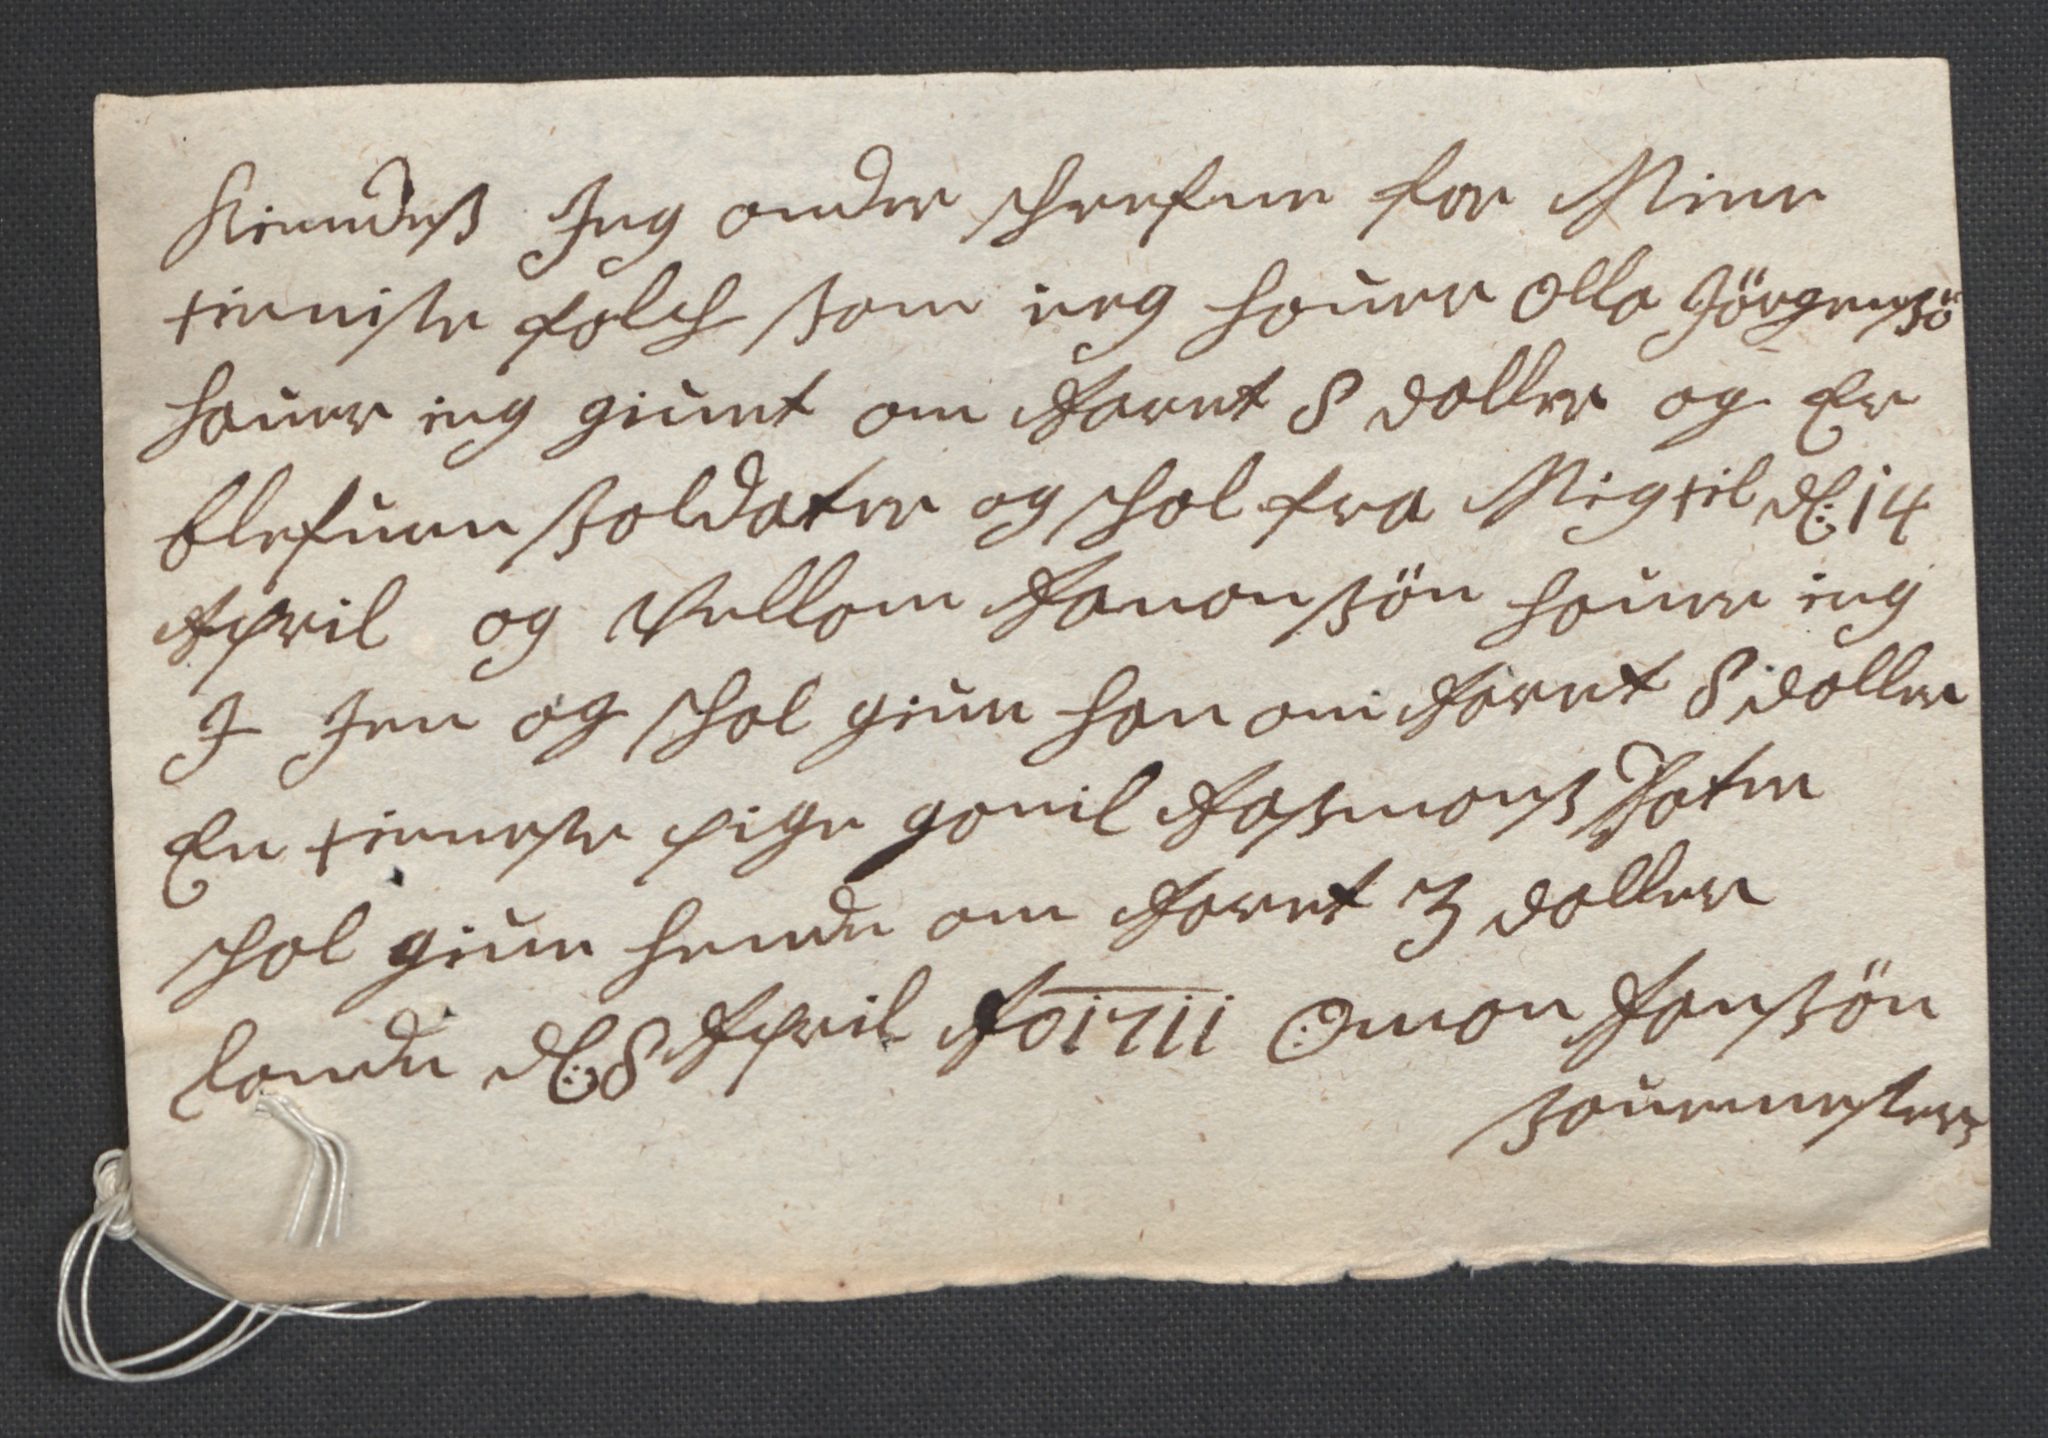 Kiendeß Ieg onder schrefne for Mine
tieniste folch som ieg hauer Olla Jörgensö
hauer ieg giuet om Aaret 8 daller og Er
blefuen soldater og schal fra Mig til d: 14
April og Vellom Aamonsön hauer ieg
I Ien og schal giue han om Aaret 8 daller
En tieneste pige gonil Aasmons Dater
schal giue hende om Aaret 3 daller
lande d: 8 April Ao 1711 Omon Hansön